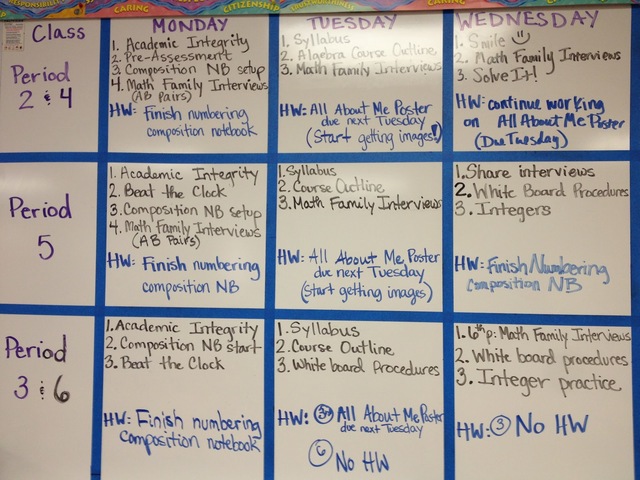 CARING
CITIZENSHIP
TRUSTWORTHINESS
CARING
Class
MONDAY
TUESDAY
WEDNESDAY
Period
2 & 4
1. Academic Integrity
2. Pre-Assessment
3. Composition NB setup
4. Math Family Interviews
(AB Pairs)
HW: Finish numbering
composition notebook
1. Syllabus
2. Algebra Course Outline
3. Math Family Interviews
HW: All About Me Poster
due next Tuesday
(Start getting images!)
1. Smile
2. Math Family Interviews
3. Solve It!
HW: continue working
on All About Me Poster
(Due Tuesday)
Period
5
1. Academic Integrity
2. Beat the Clock
3. Composition NB setup
4. Math Family Interviews
(AB Pairs)
HW: Finish numbering
composition NB
1. Syllabus
2. Course Outline
3. Math Family Interviews
HW: All About Me Poster
due next Tuesday
(Start getting images)
1. Share interviews
2. White Board Procedures
3. Integers
HW: Finish Numbering
composition NB
Period
3 & 6
1. Academic Integrity
2. Composition NB start
3. Beat the Clock
HW: Finish numbering
composition notebook
1. Syllabus
2. Course Outline
3. White board Procedures
HW: 3 All About Me Poster
due next Tuesday
6 No HW
1. 6th p: Math Family Interviews
2. White board procedures
3. Integer practice
HW: 3 No HW